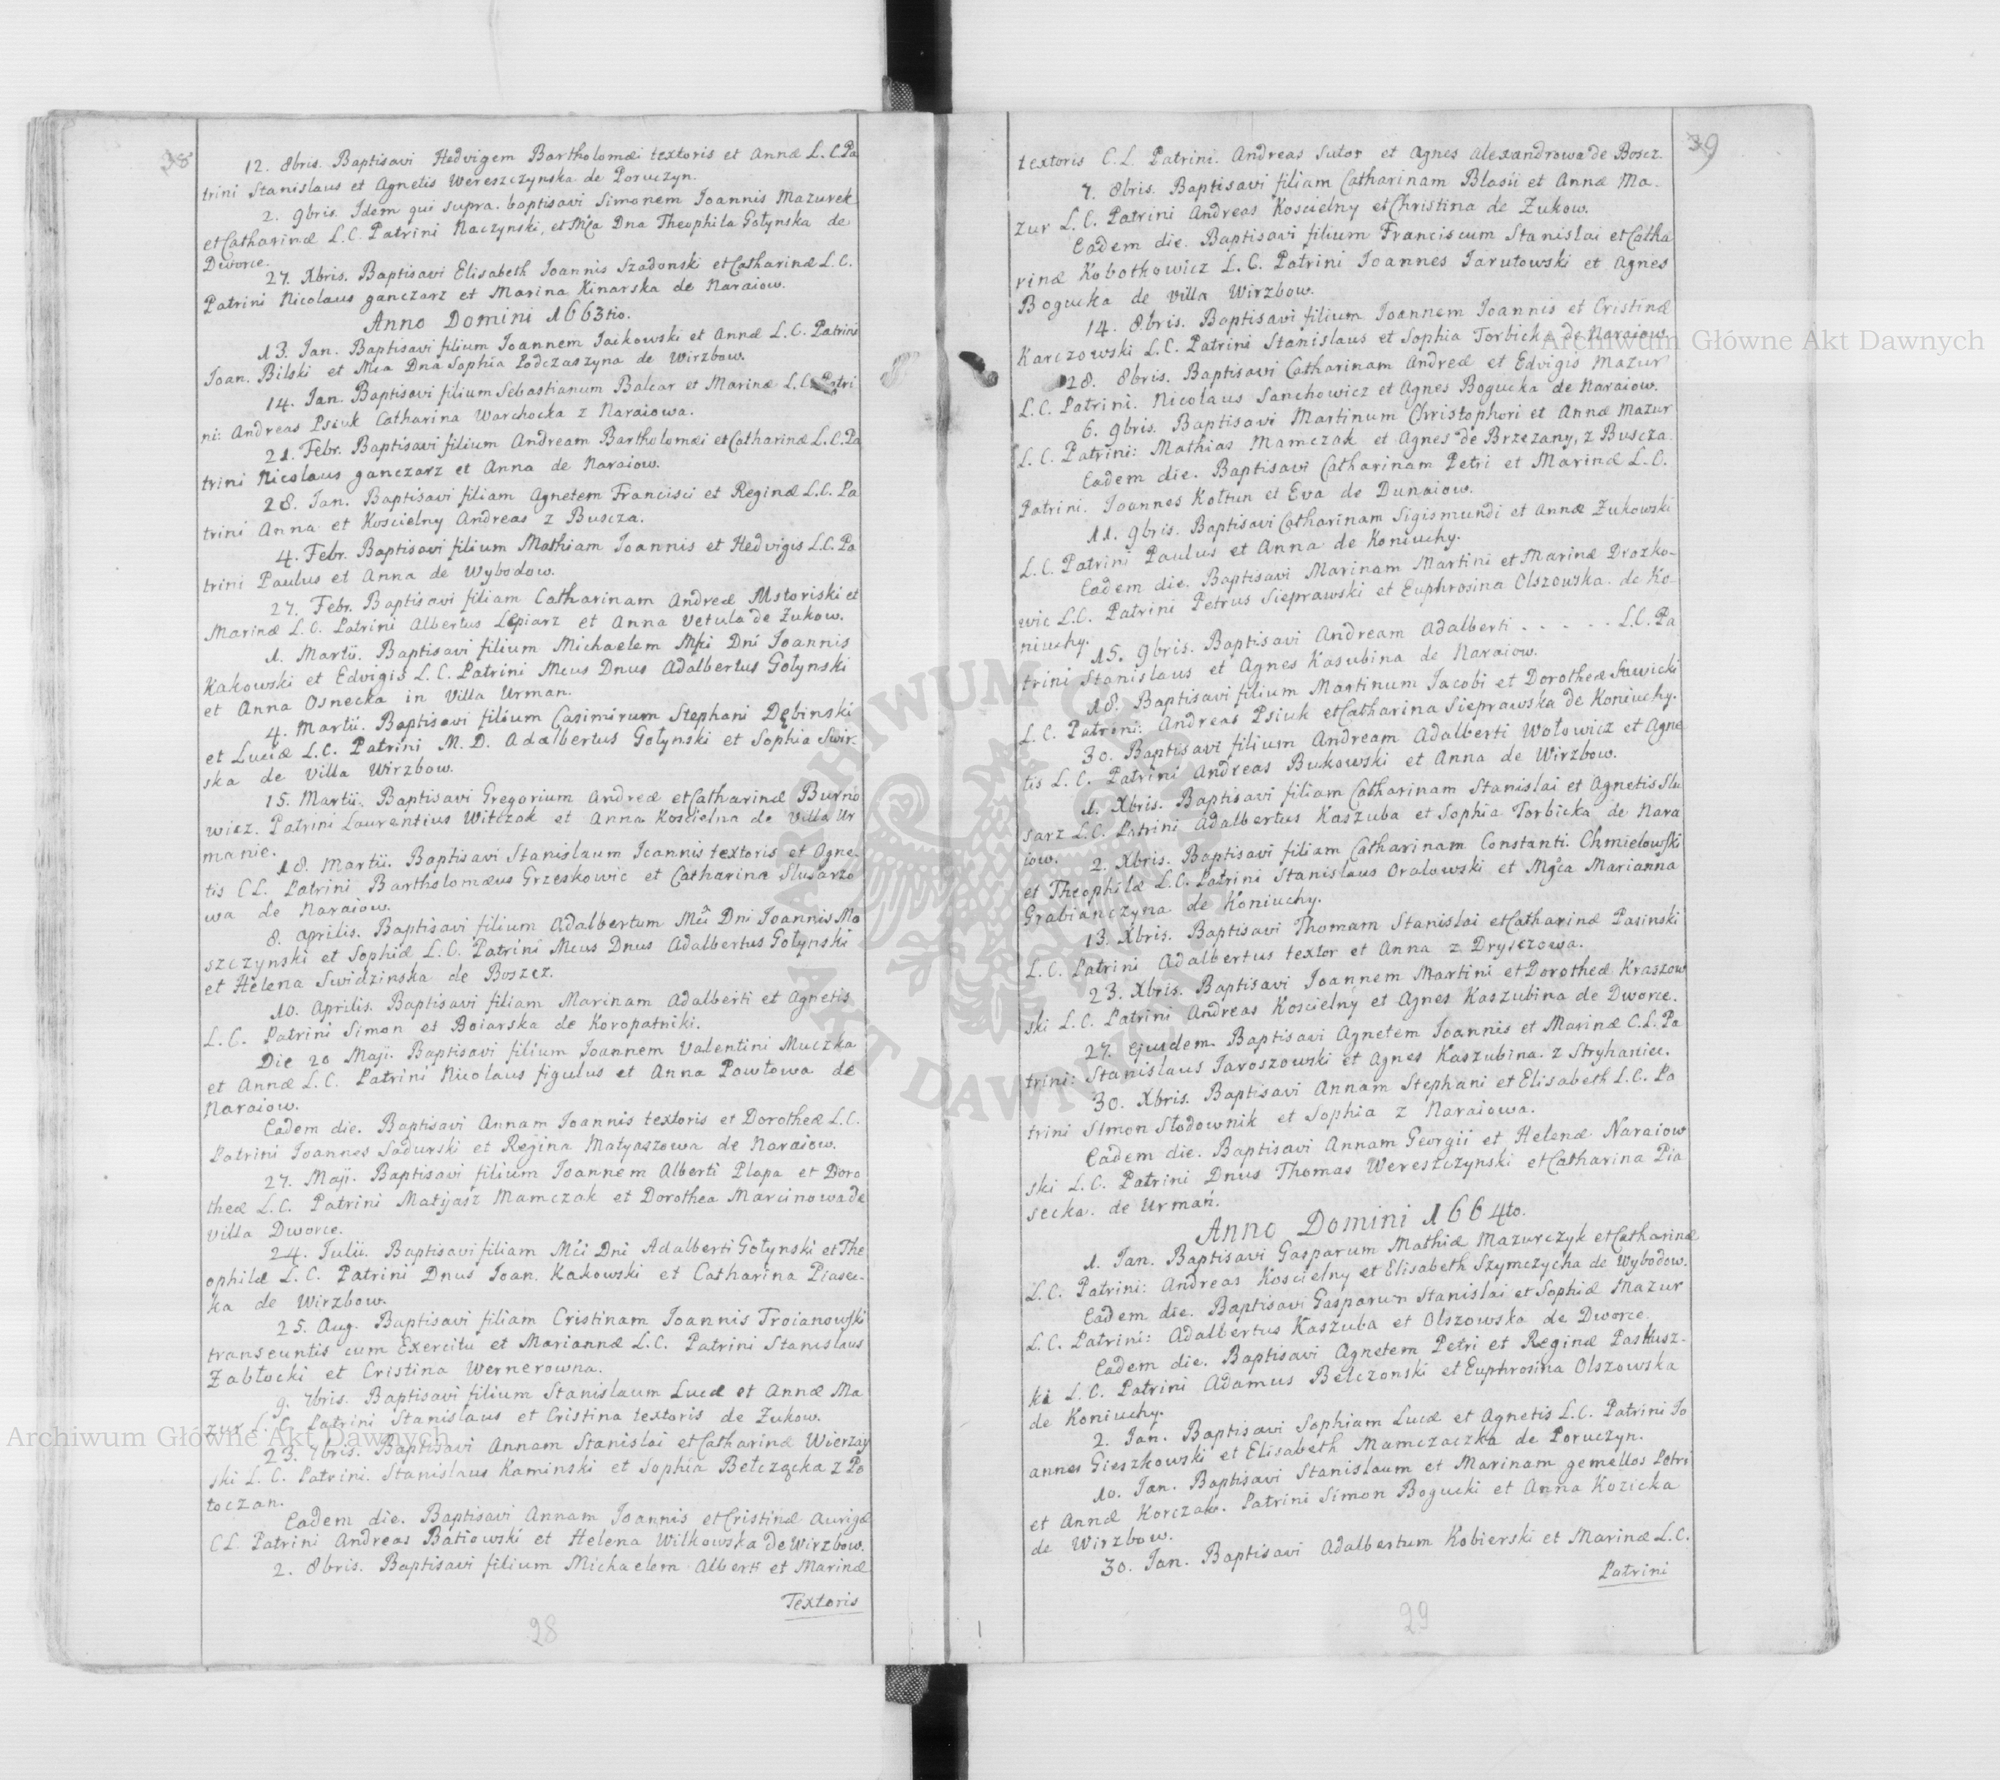 38
12. 8bris. Baptisavi Hedvigem Bartholomæi textoris et Annæ L. C. Pa
trini Stanislaus et Agnetis Wereszczynska de Poruczyn.
2. 9bris. Idem qui supra. baptisavi Simonem Joannis Mazurek
et Catharinæ L. C. Patrini Naczynski, et Mca Dna Theophila Gołynska de
Dworce.
27. Xbris. Baptisavi Elisabeth Joannis Szadonski et Catharinæ L. C.
Patrini Nicolaus ganczarz et Marina Kinarska de Naraiow.
Anno Domini 1663tio.
13. Jan. Baptisavi filium Joannem Jaikowski et Annæ L. C. Patrini
Joan. Bilski et Mca Dna Sophia Podczaszyna de Wirzbow.
14. Jan. Baptisavi filium Sebastianum Balcar et Marinæ L. C. Patri
ni: Andreas Psiuk Catharina Warchocka z Naraiowa.
21. Febr. Baptisavi filium Andream Bartholomæi et Catharinæ L. C. Pa
trini Nicolaus ganczarz et Anna de Naraiow.
28. Jan. Baptisavi filiam Agnetem Francisci et Reginæ L. C. Pa
trini Anna et Koscielny Andreas z Buscza.
4. Febr. Baptisavi filium Mathiam Joannis et Hedvigis L. C. Pa
trini Paulus et Anna de Wybodow.
27. Febr. Baptisavi filiam Catharinam Andreæ Mstoriski et
Marinæ L. C. Patrini Albertus Lepiarz et Anna Vetula de Zukow.
1. Martii. Baptisavi filium Michaelem Mci Dni Joannis
Kakowski et Edvigis L. C. Patrini Mcus Dnus Adalbertus Gołynski
et Anna Osnecka in Villa Urman.
4. Martii. Baptisavi filium Casimirum Stephani Dębinski
et Luciæ L. C. Patrini M. D. Adalbertus Gołynski et Sophia Swir-
ska de Villa Wirzbow.
15. Martii. Baptisavi Gregorium Andreæ et Catharinæ Burno
wicz. Patrini Laurentius Witczak et Anna Koscielna de Villa Ur
manie.
18. Martii. Baptisavi Stanislaum Joannis textoris et Agne-
tis CL. Patrini Bartholomæus Grzeskowic et Catharina Slusarzo
wa de Naraiow.
8. Aprilis. Baptisavi filium Adalbertum Mci Dni Joannis Mo
szczynski et Sophiæ L. C. Patrini Mcus Dnus Adalbertus Gołynski
et Helena Swidzinska de Boszcz.
10. Aprilis. Baptisavi filiam Marinam Adalberti et Agnetis
L. C. Patrini Simon et Boiarska de Koropatniki.
Die 20 Maji. Baptisavi filium Joannem Valentini Muczka
et Annæ L. C. Patrini Nicolaus figulus et Anna Pawłowa de
Naraiow.
Eadem die. Baptisavi Annam Joannis textoris et Dorotheæ L. C.
Patrini Joannes Sadurski et Regina Matyaszowa de Naraiow.
27. Maji. Baptisavi filium Joannem Alberti Plapa et Doro
theæ L. C. Patrini Matijasz Mamczak et Dorothea Marcinowa de
villa Dworce.
24. Julii. Baptisavi filiam Mci Dni Adalberti Gołynski et The
ophilæ L. C. Patrini Dnus Joan. Kakowski et Catharina Piasec-
ka de Wirzbow.
25. Aug. Baptisavi filiam Cristinam Joannis Troianowski
transeuntis cum Exercitu et Mariannæ L. C. Patrini Stanislaus
Zabłocki et Cristina Wernerowna.
9. 7bris. Baptisavi filium Stanislaum Lucæ et Annæ Ma
zur L. C. Patrini Stanislaus et Cristina textoris de Zukow.
23. 7bris. Baptisavi Annam Stanislai et Catharinæ Wierzay
ski L. C. Patrini. Stanislaus Kaminski et Sophia Bełczącka z Po
toczan.
Eadem die. Baptisavi Annam Joannis et Cristinæ Aurigæ
CL. Patrini Andreas Batiowski et Helena Wilkowska de Wirzbow.
2. 8bris. Baptisavi filium Michaelem Alberti et Marinæ
Textoris
28
39
textoris C. L. Patrini. Andreas Sutor et Agnes Alexandrowa de Boscz.
7. 8bris. Baptisavi filiam Catharinam Blasii et Annæ Ma-
zur L. C. Patrini Andreas Koscielny et Christina de Zukow.
Eadem die. Baptisavi filium Franciscum Stanislai et Catha
rinæ Kobotkowicz L. C. Patrini Joannes Jarutowski et Agnes
Bogucka de villa Wirzbow.
14. 8bris. Baptisavi filium Joannem Joannis et Cristinæ
Karczowski L. C. Patrini Stanislaus et Sophia Torbicka de Naraiow.
28. 8bris. Baptisavi Catharinam Andreæ et Edvigis Mazur
L. C. Patrini. Nicolaus Sanchowicz et Agnes Bogucka de Naraiow.
6. 9bris. Baptisavi Martinum Christophori et Annæ Mazur
L. C. Patrini: Mathias Mamczak et Agnes de Brzezany, z Buscza.
Eadem die. Baptisavi Catharinam Petri et Marinæ L. C.
Patrini. Joannes Kołtun et Eva de Dunaiow.
11. 9bris. Baptisavi Catharinam Sigismundi et Annæ Zukowski
L. C. Patrini Paulus et Anna de Koniuchy.
Eadem die. Baptisavi Marinam Martini et Marinæ Drozko-
wic L. C. Patrini Petrus Sieprawski et Euphrosina Olszowska de Ko-
niuchy.
15. 9bris. Baptisavi Andream Adalberti . . . . . L. C. Pa
trini Stanislaus et Agnes Kasubina de Naraiow.
18. Baptisavi filium Martinum Jacobi et Dorotheæ Sawicki
L. C. Patrini: Andreas Psiuk et Catharina Sieprawska de Koniuchy.
30. Baptisavi filium Andream Adalberti Wołowicz et Agne
tis L. C. Patrini Andreas Bukowski et Anna de Wirzbow.
1. Xbris. Baptisavi filiam Catharinam Stanislai et Agnetis Slu
sarz L. C. Patrini Adalbertus Kaszuba et Sophia Torbicka de Nara
iow.
2. Xbris. Baptisavi filiam Catharinam Constanti. Chmielowski
et Theophilæ L. C. Patrini Stanislaus Oralowski et Mgca Marianna
Grabianczyna de Koniuchy.
13. Xbris. Baptisavi Thomam Stanislai et Catharinæ Pasinski
L. C. Patrini Adalbertus textor et Anna z Dryszczowa.
23. Xbris. Baptisavi Joannem Martini et Dorotheæ Kraszow
ski L. C. Patrini Andreas Koscielny et Agnes Kaszubina de Dworce.
27. Ejusdem. Baptisavi Agnetem Joannis et Marinæ C. L. Pa
trini: Stanislaus Jaroszowski et Agnes Kaszubina. z Stryhaniec.
30. Xbris. Baptisavi Annam Stephani et Elisabeth L. C. Pa
trini Simon Słodownik et Sophia z Naraiowa.
Eadem die. Baptisavi Annam Georgii et Helenæ Naraiow
ski L. C. Patrini Dnus Thomas Wereszczynski et Catharina Pia
secka. de Urmań.
Anno Domini 1664to.
1. Jan. Baptisavi Gasparum Mathiæ Mazurczyk et Catharinæ
L. C. Patrini: Andreas Koscielny et Elisabeth Szymczycha de Wybodow.
Eadem die. Baptisavi Gasparum Stanislai et Sophiæ Mazur
L. C. Patrini: Adalbertus Kaszuba et Olszowska de Dworce.
Eadem die. Baptisavi Agnetem Petri et Reginæ Pastusz-
ka L. C. Patrini Adamus Bełczonski et Euphrosina Olszowska
de Koniuchy.
2. Jan. Baptisavi Sophiam Lucæ et Agnetis L. C. Patrini Jo
annes Gieszkowski et Elisabeth Mamczaczka de Poruczyn.
10. Jan. Baptisavi Stanislaum et Marinam gemellos Petri
et Annæ Korczak. Patrini Simon Bogucki et Anna Kozicka
de Wirzbow.
30. Jan. Baptisavi Adalbertum Kobierski et Marinæ L. C.
Patrini
29
Archiwum Główne Akt Dawnych
Archiwum Główne Akt Dawnych